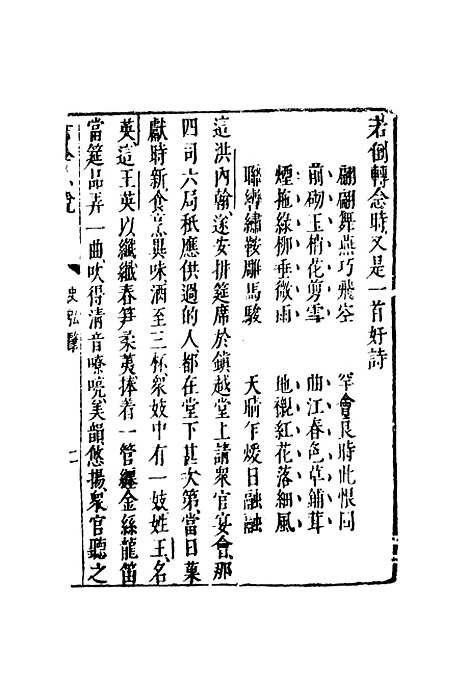 若倒轉念時又是一首好詩
翩翩舞燕巧飛空　罕會良時此恨同
前砌玉梢花剪雪　曲江春色草鋪茸
煙拖綠柳垂微雨　地襯紅花落細風
聯轡繡鞍雕馬駿　天晴乍煖日融融
這洪內翰遂安排筵席於鎮越堂上請衆官宴會那
四司六局秪應供過的人都在堂下甚次第當日菓
獻時新食烹異味酒至三杯衆妓中有一妓姓王名
英這王英以纖纖春笋柔荑捧着一管纏金絲龍笛
當筵品弄一曲吹得清音嘹喨美韻悠揚衆官聽之
史弘肇　二